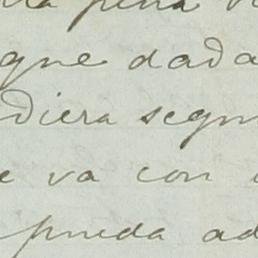 pena
que dada
diera segun
e va con
pueda ad